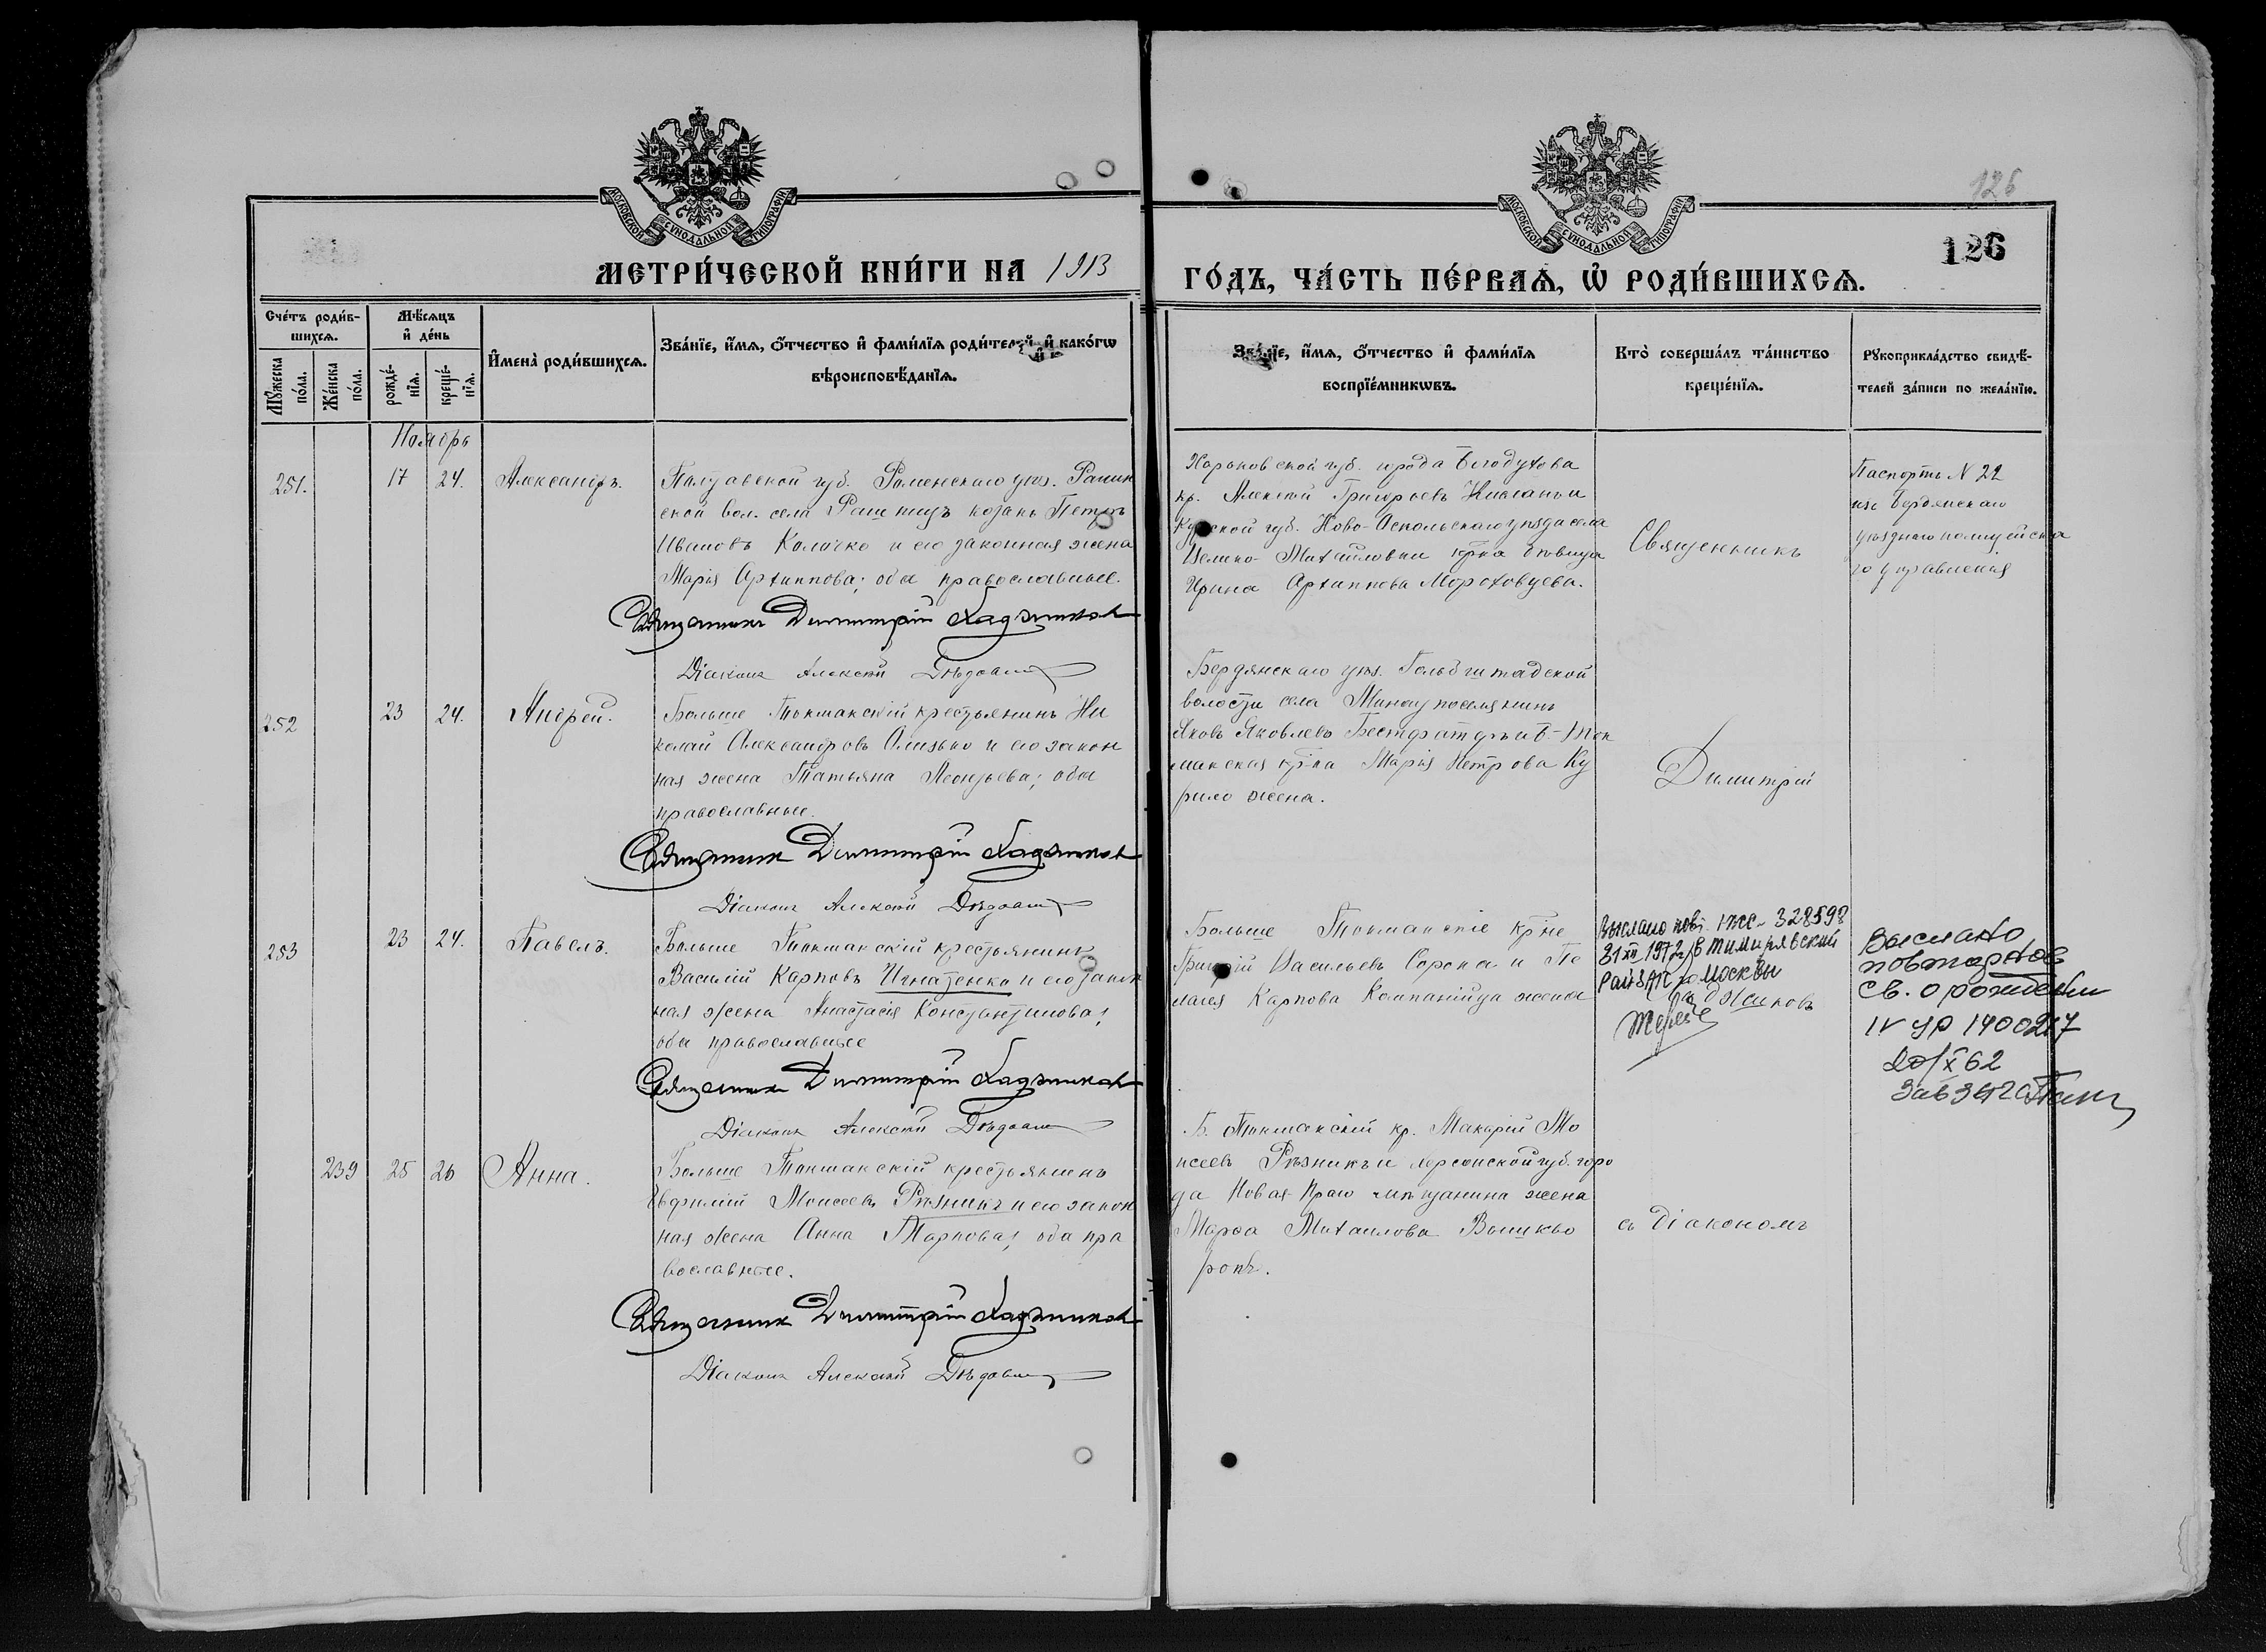 126
126
МОСКОВСКОЙ СѴНОДАЛЬНОЙ ТИПОГРАФІИ
МОСКОВСКОЙ СѴНОДАЛЬНОЙ ТИПОГРАФІИ
МЕТРИ́ЧЕСКОЙ КНИ́ГИ НА 1913
ГО́ДЪ, ЧА́СТЬ ПЕ́РВАѦ, Ѡ҆ РОДИ́ВШИХСѦ.
Сче́тъ роди́в-
шихсѧ.
Мꙋ́жеска по́ла.
Же́нска по́ла.
Мѣ́сѧцъ
и҆ де́нь
рожде́-нїѧ.
креще́-нїѧ.
И҆мена̀ роди́вшихсѧ.
Зва́нїе, и҆́мѧ, ѻ҆́тчество и҆ фами́лїѧ роди́телей и҆ како́гѡ
вѣроисповѣ́данїѧ.
Зва́нїе, и҆́мѧ, ѻ҆́тчество и҆ фами́лїѧ
воспрїе́мникѡвъ.
Кто̀ соверша́лъ та́инство
креще́нїѧ.
Рꙋкоприкла́дство свидѣ́-
телей за́писи по жела́нїю.
Ноябрь
251.
17
24.
Александръ.
Полтавской губ. Роменскаго уѣз.
ской вол. села козакъ Петръ
Ивановъ Колочко и его законная жена
Марія Архиппова; оба православные.
Священникъ Димитрій Хаджиновъ
Діаконъ Алексѣй
Харьковской губ. города Богодухова
кр. Алексѣй Григорьевъ
Курской губ. Ново-Оскольскаго уѣзда села
Велико-Михайловки кр-ка дѣвица
Ирина Архиппова Мороховцева.
Священникъ
Паспортъ N 22
изъ Бердянскаго
уѣзднаго полицейска
го управленія
252
23
24.
Андрей.
Больше Токмакскій крестьянинъ Ни
колай Александровъ Олизько и его закон
ная жена Татьяна Леонтьева; оба
православные.
Священникъ Димитрій Хаджиновъ
Діаконъ Алексѣй
Бердянскаго уѣз. Гольдштадской
волости села поселянинъ
Яковъ Яковлевъ и Б-Ток
макская кр-ка Марія Петрова Ку
рило жена.
Димитрій
253
23
24.
Павелъ.
Больше Токмакскій крестьянинъ
Василій Карповъ Игнатенко и его закон
ная жена Анастасія Константинова;
оба православные
Священникъ Димитрій Хаджиновъ
Діаконъ Алексѣй
Больше Токмакскіе кр-не
Григорій Васильевъ Сорока и Пе
лагея Карпова Компанійца жена
Выслано повт. 328598
31 XII 1972 в Тимирязевский
райЗАГС г. Москвы
Хаджиновъ
Выслано
повторное
св. о рождении
IV УР 1400217
20/X 62
Зав ЗАГС
239
25
26
Анна.
Больше Токмакскій крестьянинъ
Евфимій Моисеевъ Рѣзникъ и его закон
ная жена Анна Карпова; оба пра
вославные.
Священникъ Димитрій Хаджиновъ
Діаконъ Алексѣй
Б. Токмакскій кр. Макарій Мо
исеевъ Рѣзникъ и Херсонской губ. горо
да Новая-Прага мѣщанина жена
Марѳа Михаилова
съ діакономъ